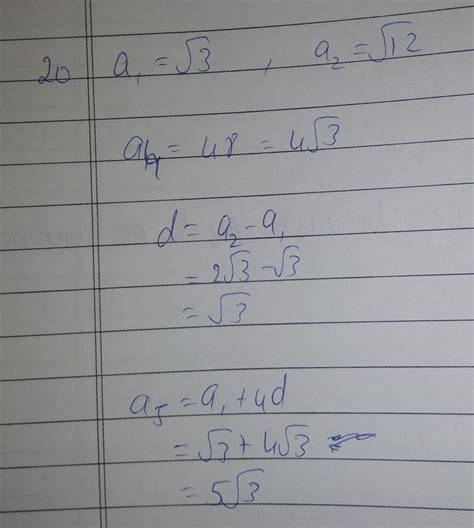 20 a₁ = √3 , a₂ = √12
a₄ = 48 = 4√3
d = a₂ - a₁
= 2√3 - √3
= √3
a₅ = a₁ + 4d
= √3 + 4√3
= 5√3